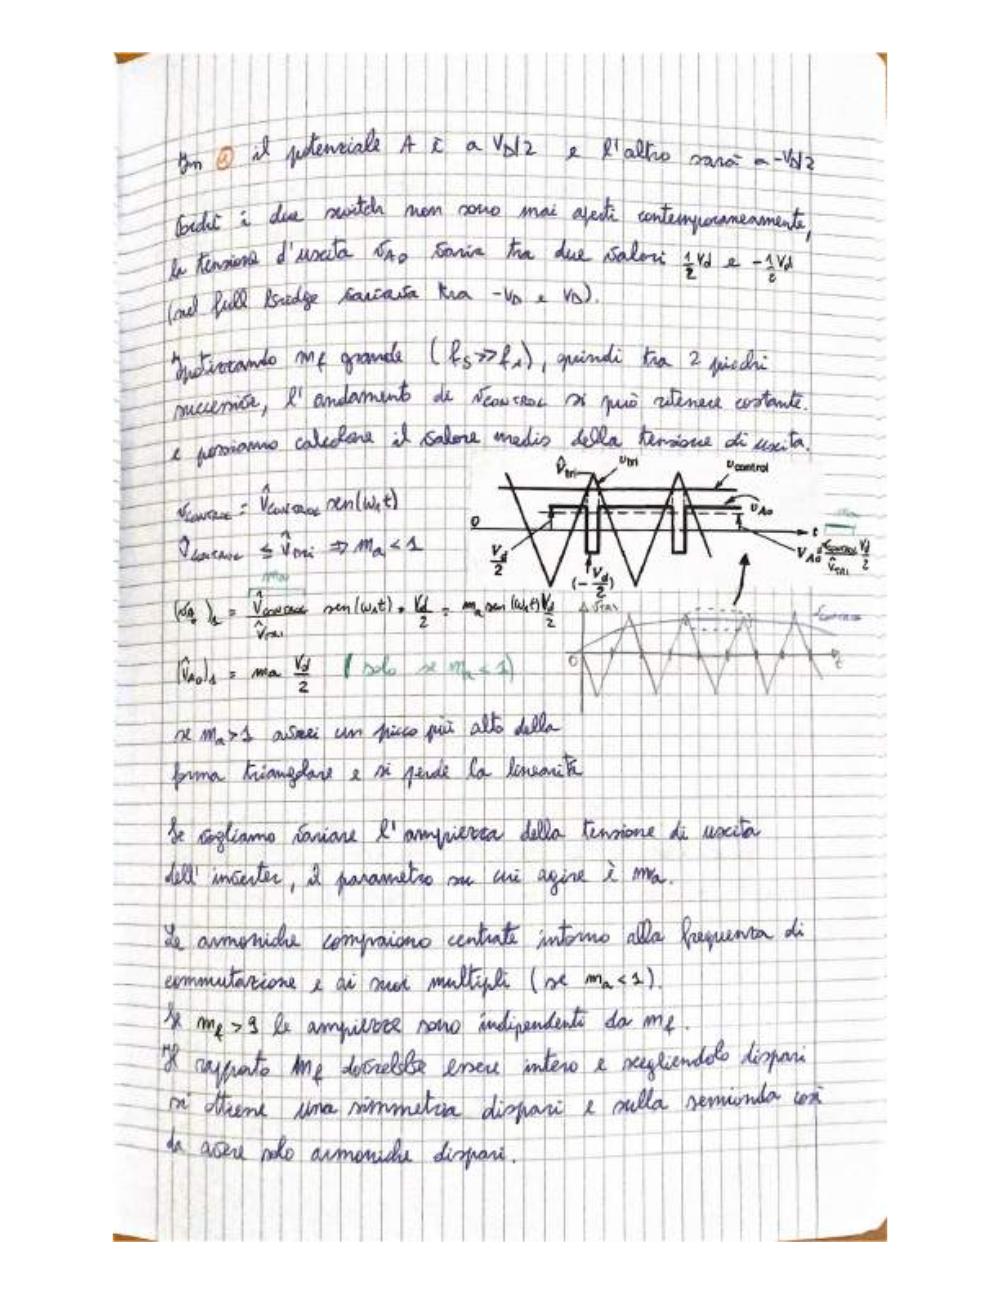 In ⓐ il potenziale A è a VD/2 e l'altro sarà a -VD/2
Poiché i due switch non sono mai aperti contemporaneamente,
la tensione d'uscita vAo varia tra due valori 1/2 Vd e -1/2 Vd
(nel full bridge variava tra -VD e VD).
Ipotizzando mf grande (fs>>f1), quindi tra 2 picchi
successivi, l'andamento di vCONTROL si può ritenere costante.
e possiamo calcolare il valore medio della tensione di uscita.
V̂tri
vtri
vcontrol
vAo
0
t
Vd/2
(-Vd/2)
VAo = vCONTROL/V̂TRI Vd/2
vCONTROL = V̂CONTROL sen(ω1t)
V̂CONTROL ≤ V̂tri ⇒ ma < 1
ma
(vAo)1 = V̂CONTROL/V̂TRI sen(ω1t) · Vd/2 = ma sen(ω1t) Vd/2
vTRI
vCONTROL
0
t
(V̂Ao)1 = ma Vd/2 (solo se ma < 1)
se ma>1 avrei un picco più alto della
forma triangolare e si perde la linearità
Se vogliamo variare l'ampiezza della tensione di uscita
dell'inverter, il parametro su cui agire è ma.
Le armoniche compaiono centrate intorno alla frequenza di
commutazione e ai suoi multipli (se ma<1).
Se mf > 9 le ampiezze sono indipendenti da mf.
Il rapporto mf dovrebbe essere intero e scegliendolo dispari
si ottiene una simmetria dispari e sulla semionda così
da avere solo armoniche dispari.